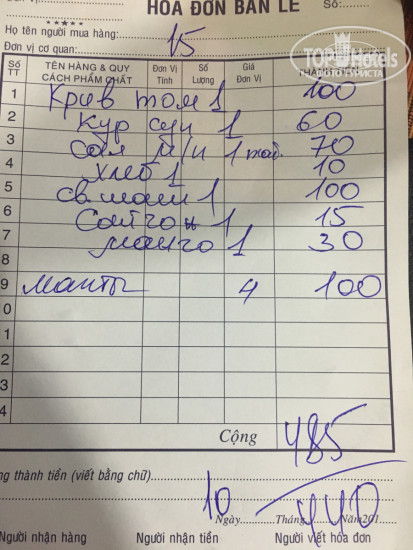 HÓA ĐƠN BÁN LẺ Số:
*****
Họ tên người mua hàng:
Đơn vị cơ quan: 15
Số TT TÊN HÀNG & QUY CÁCH PHẨM CHẤT Đơn Vị Tính Số Lượng Giá Đơn Vị
TOP Hotels
1 Крив том 1 100
2 Кур суп 1 60
3 Сал 1 70
4 Хлеб 1 10
5 св. 1 100
6 Сайгон 1 15
7 манго 1 30
8
9 манты 4 100
0
1
2
3
4
Cộng 485
ng thành tiền (viết bằng chữ)
10 440
Ngày Tháng Năm 201
Người nhận hàng Người nhận tiền Người viết hóa đơn